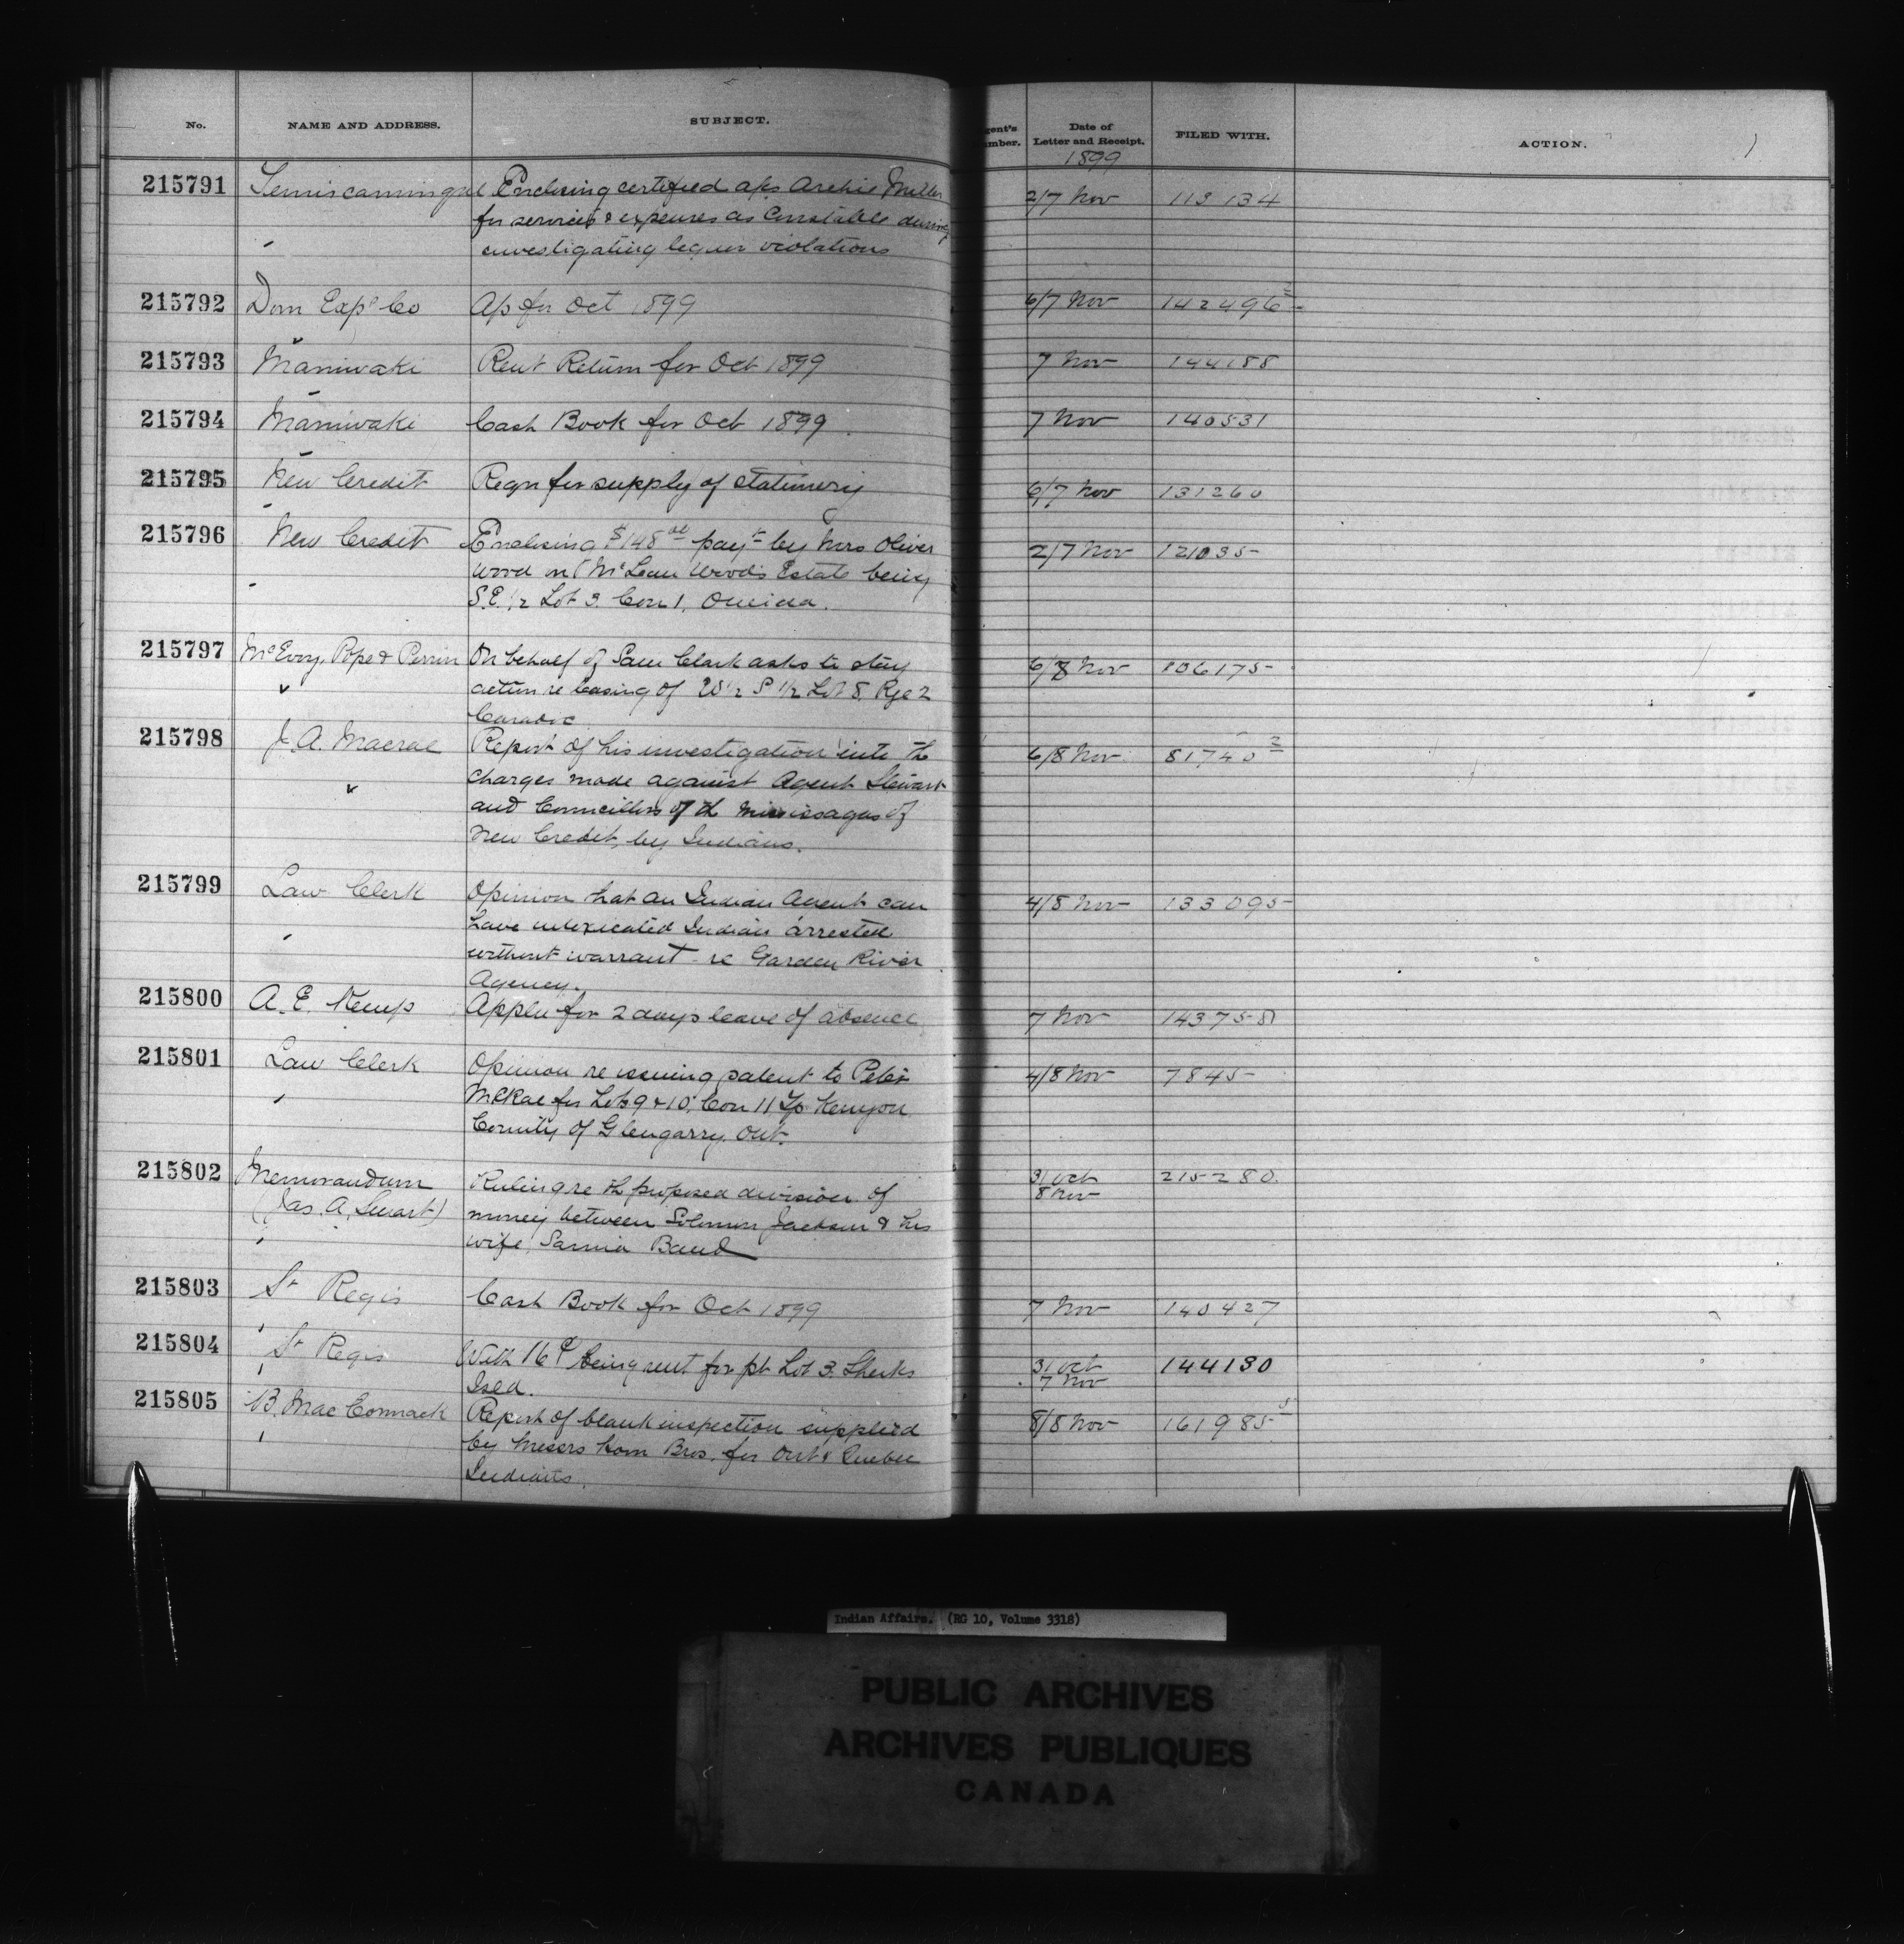 No. NAME AND ADDRESS. SUBJECT. gent's umber. Date of Letter and Receipt. FILED WITH. ACTION.
1899
215791 Temiscamingue Enclosing certified a/cs Archie Miller 2/7 Nov 113 134
for services & expenses as Constable during
investigating liquor violations
215792 Dom Exps Co A/c for Oct 1899 6/7 Nov 142496
215793 Maniwaki Rent Return for Oct 1899 7 Nov 144188
215794 Maniwaki Cash Book for Oct 1899 7 Nov 140531
215795 New Credit Reqn for supply of stationery 6/7 Nov 131260
215796 New Credit Enclosing $148 payt by Mrs Oliver 2/7 Nov 121035
Wood on McLean Woods Estate being
S.E. 1/2 Lot 3. Con 1, Oneida.
215797 McEvoy, Pope & Perrin On behalf of Sam Clark asks to stay 6/8 Nov 106175
action re leasing of W 1/2 S 1/2 Lot 8, Rge 2
Caradoc
215798 J. A. Macrae Report of his investigation into th 6/8 Nov 81740 2
charges made against Agent Stewart
and Councillors of th Mississagas of
New Credit, by Indians.
215799 Law Clerk Opinion that an Indian Agent can 4/8 Nov 133095
have intoxicated Indian arrested
without warrant - re Garden River
Agency.
215800 A. E. Kemp Appln for 2 days leave of absence 7 Nov 143758
215801 Law Clerk Opinion re issuing patent to Peter 4/8 Nov 7845
McRae for Lots 9 & 10, Con 11 Tp Kenyon
County of Glengarry Ont.
215802 Memorandum Ruling re th proposed division of 31 Oct 215280.
(Jas. A. Smart) money between Solomon Jackson & his 8 Nov
wife, Sarnia Band
215803 St Regis Cash Book for Oct 1899 7 Nov 140427
215804 St Regis With 16 being rent for pt Lot 3. Sheeks 31 Oct 144130
Isld. 7 Nov
215805 B. MacCormack Report of blank inspection supplied 8/8 Nov 161985 5
by Messrs Bros. for Ont & Quebec
Indians.
Indian Affairs. (RG 10, Volume 3318)
PUBLIC ARCHIVES
ARCHIVES PUBLIQUES
CANADA